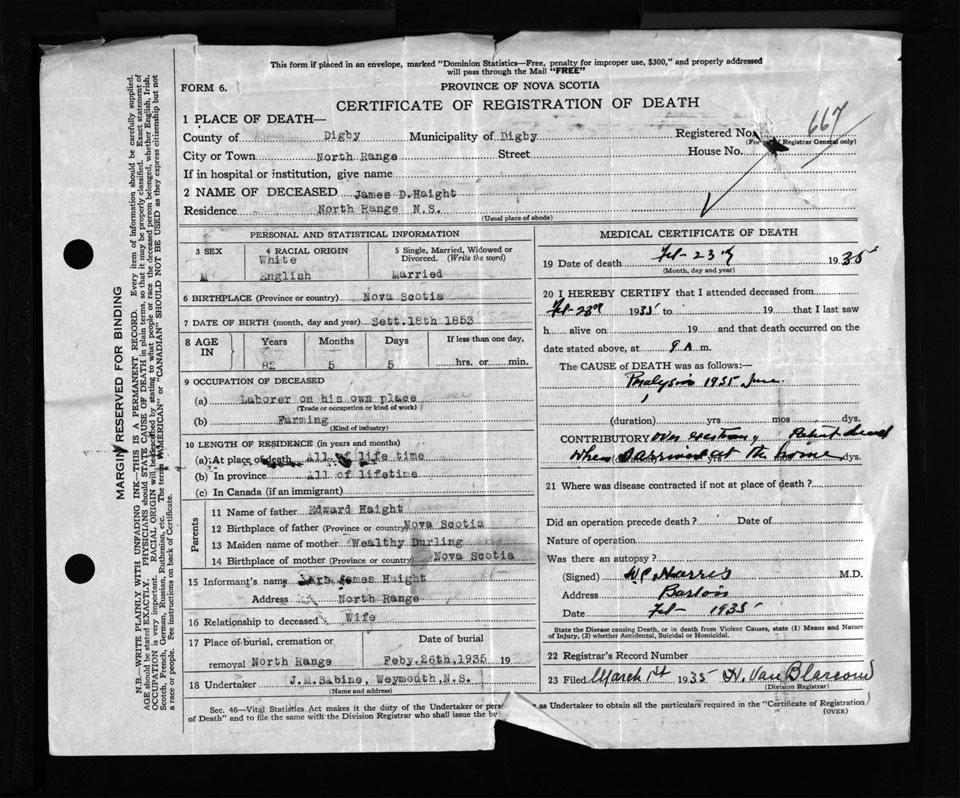 This form if placed in an envelope, marked "Dominion Statistics—Free, penalty for improper use, $300," and properly addressed
will pass through the Mail "FREE"
FORM 6.
PROVINCE OF NOVA SCOTIA
CERTIFICATE OF REGISTRATION OF DEATH
667
1 PLACE OF DEATH—
County of Digby Municipality of Digby Registered No.
(For use of Registrar General only)
City or Town North Range Street House No.
If in hospital or institution, give name
2 NAME OF DECEASED James D.Haight
Residence North Range N.S.
(Usual place of abode)
PERSONAL AND STATISTICAL INFORMATION
3 SEX 4 RACIAL ORIGIN 5 Single, Married, Widowed or Divorced. (Write the word)
White
M English Married
6 BIRTHPLACE (Province or country) Nova Scotia
7 DATE OF BIRTH (month, day and year) Sett.18th 1853
8 AGE IN Years Months Days If less than one day,
82 5 5 hrs. or min.
9 OCCUPATION OF DECEASED
(a) Laborer on his own place
(Trade or occupation or kind of work)
(b) Farming
(Kind of industry)
10 LENGTH OF RESIDENCE (in years and months)
(a) At place of death all of life time
(b) In province All of lifetime
(c) In Canada (if an immigrant)
Parents
11 Name of father Edward Haight
12 Birthplace of father (Province or country) Nova Scotia
13 Maiden name of mother Wealthy Durling
14 Birthplace of mother (Province or country) Nova Scotia
15 Informant's name James Haight
Address North Range
16 Relationship to deceased Wife
17 Place of burial, cremation or Date of burial
removal North Range Feby.26th.1935 19
18 Undertaker J.M.Sabine, Weymouth,N.S.
(Name and address)
MEDICAL CERTIFICATE OF DEATH
19 Date of death Feb-23rd 1935
(Month, day and year)
20 I HEREBY CERTIFY that I attended deceased from
Feb-23rd 1935 to 19 that I last saw
h alive on 19 and that death occurred on the
date stated above, at 9 A m.
The CAUSE of DEATH was as follows:—
Paralysis 1935
(duration) yrs mos dys.
CONTRIBUTORY over exertion, Patient dead
when I arrived at the home
(duration) yrs dys.
21 Where was disease contracted if not at place of death?
Did an operation precede death? Date of
Nature of operation
Was there an autopsy?
(Signed) W.C. Harris M.D.
Address Barton
Date Feb- 1935
State the Disease causing Death, or in death from Violent Causes, state (1) Means and Nature
of Injury, (2) whether Accidental, Suicidal or Homicidal.
22 Registrar's Record Number
23 Filed March 1st 1935 H. Van Blarcom
(Division Registrar)
Sec. 46—Vital Statistics Act makes it the duty of the Undertaker or person as Undertaker to obtain all the particulars required in the "Certificate of Registration
of Death" and to file the same with the Division Registrar who shall issue the
(OVER)
MARGIN RESERVED FOR BINDING
N.B.—WRITE PLAINLY WITH UNFADING INK—THIS IS A PERMANENT RECORD. Every item of information should be carefully supplied.
AGE should be stated EXACTLY. PHYSICIANS should STATE CAUSE OF DEATH in plain terms, so that it may be properly classified. Exact statement of
OCCUPATION is very important. RACIAL ORIGIN will be described by stating to what people or race the deceased person belonged, whether English, Irish,
Scotch, French, German, Russian, Ruthenian, etc. The terms "AMERICAN" or "CANADIAN" SHOULD NOT BE USED as they express citizenship but not
a race or people. See instructions on back of Certificate.